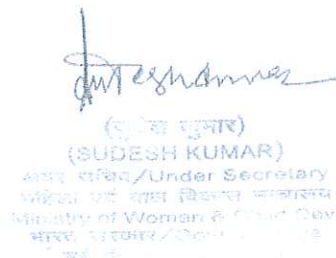 (सुदेश कुमार)
(SUDESH KUMAR)
अवर सचिव/Under Secretary
महिला एवं बाल विकास मंत्रालय
Ministry of Woman & Child Dev
भारत सरकार/Govt